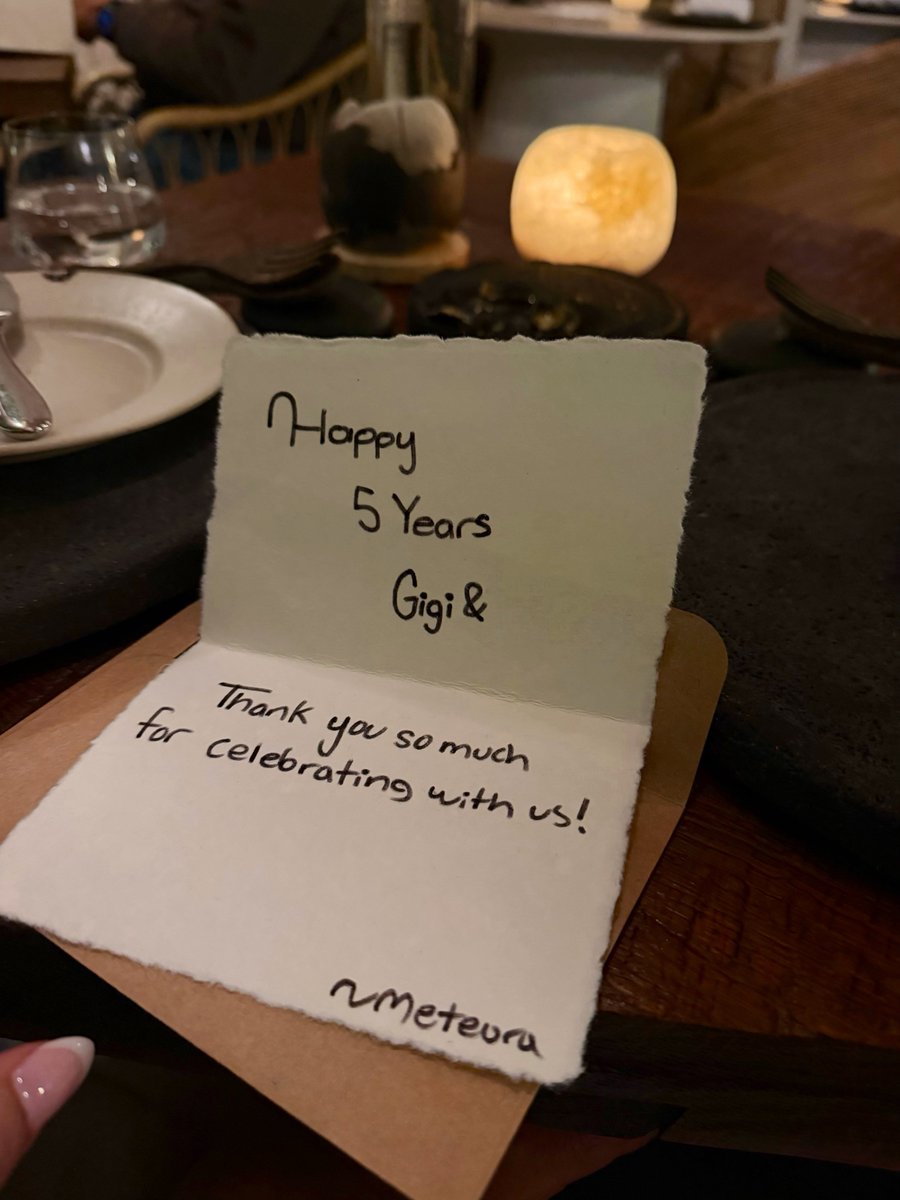 Happy
5 Years
Gigi &
Thank you so much
for celebrating with us!
~Meteora